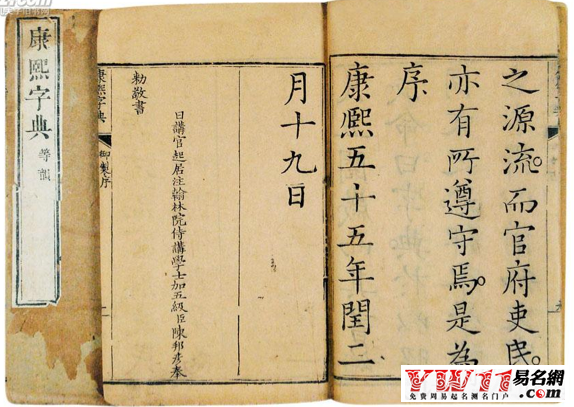 之源流。而官府吏民。
亦有所遵守焉。是為
序。
康熙五十五年閏二
月十九日
日講官起居注翰林院侍講學士加五級臣陳邦彥奉
勅敬書
康熙字典
御製序
康熙字典
等韻
易名網
免費周易起名測名門户